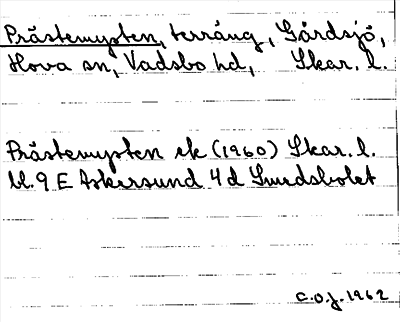 Prästemypten, terräng, Gårdsjö,
Hova sn, Vadsbo hd, Skar. l.
Prästemypten ek (1960) Skar. l.
bl. 9 E Askersund 4 d Smedsbolet
C.O.J. 1962